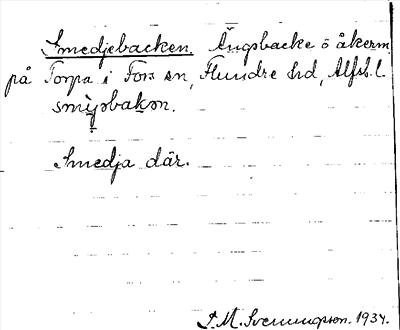 Smedjebacken. Ängsbacke ö åkern
på Torpa i Fors sn, Flundre hd, Älfsb. l.
smijobakon.
Smedja där.
S. M. Svenungsson. 1934.